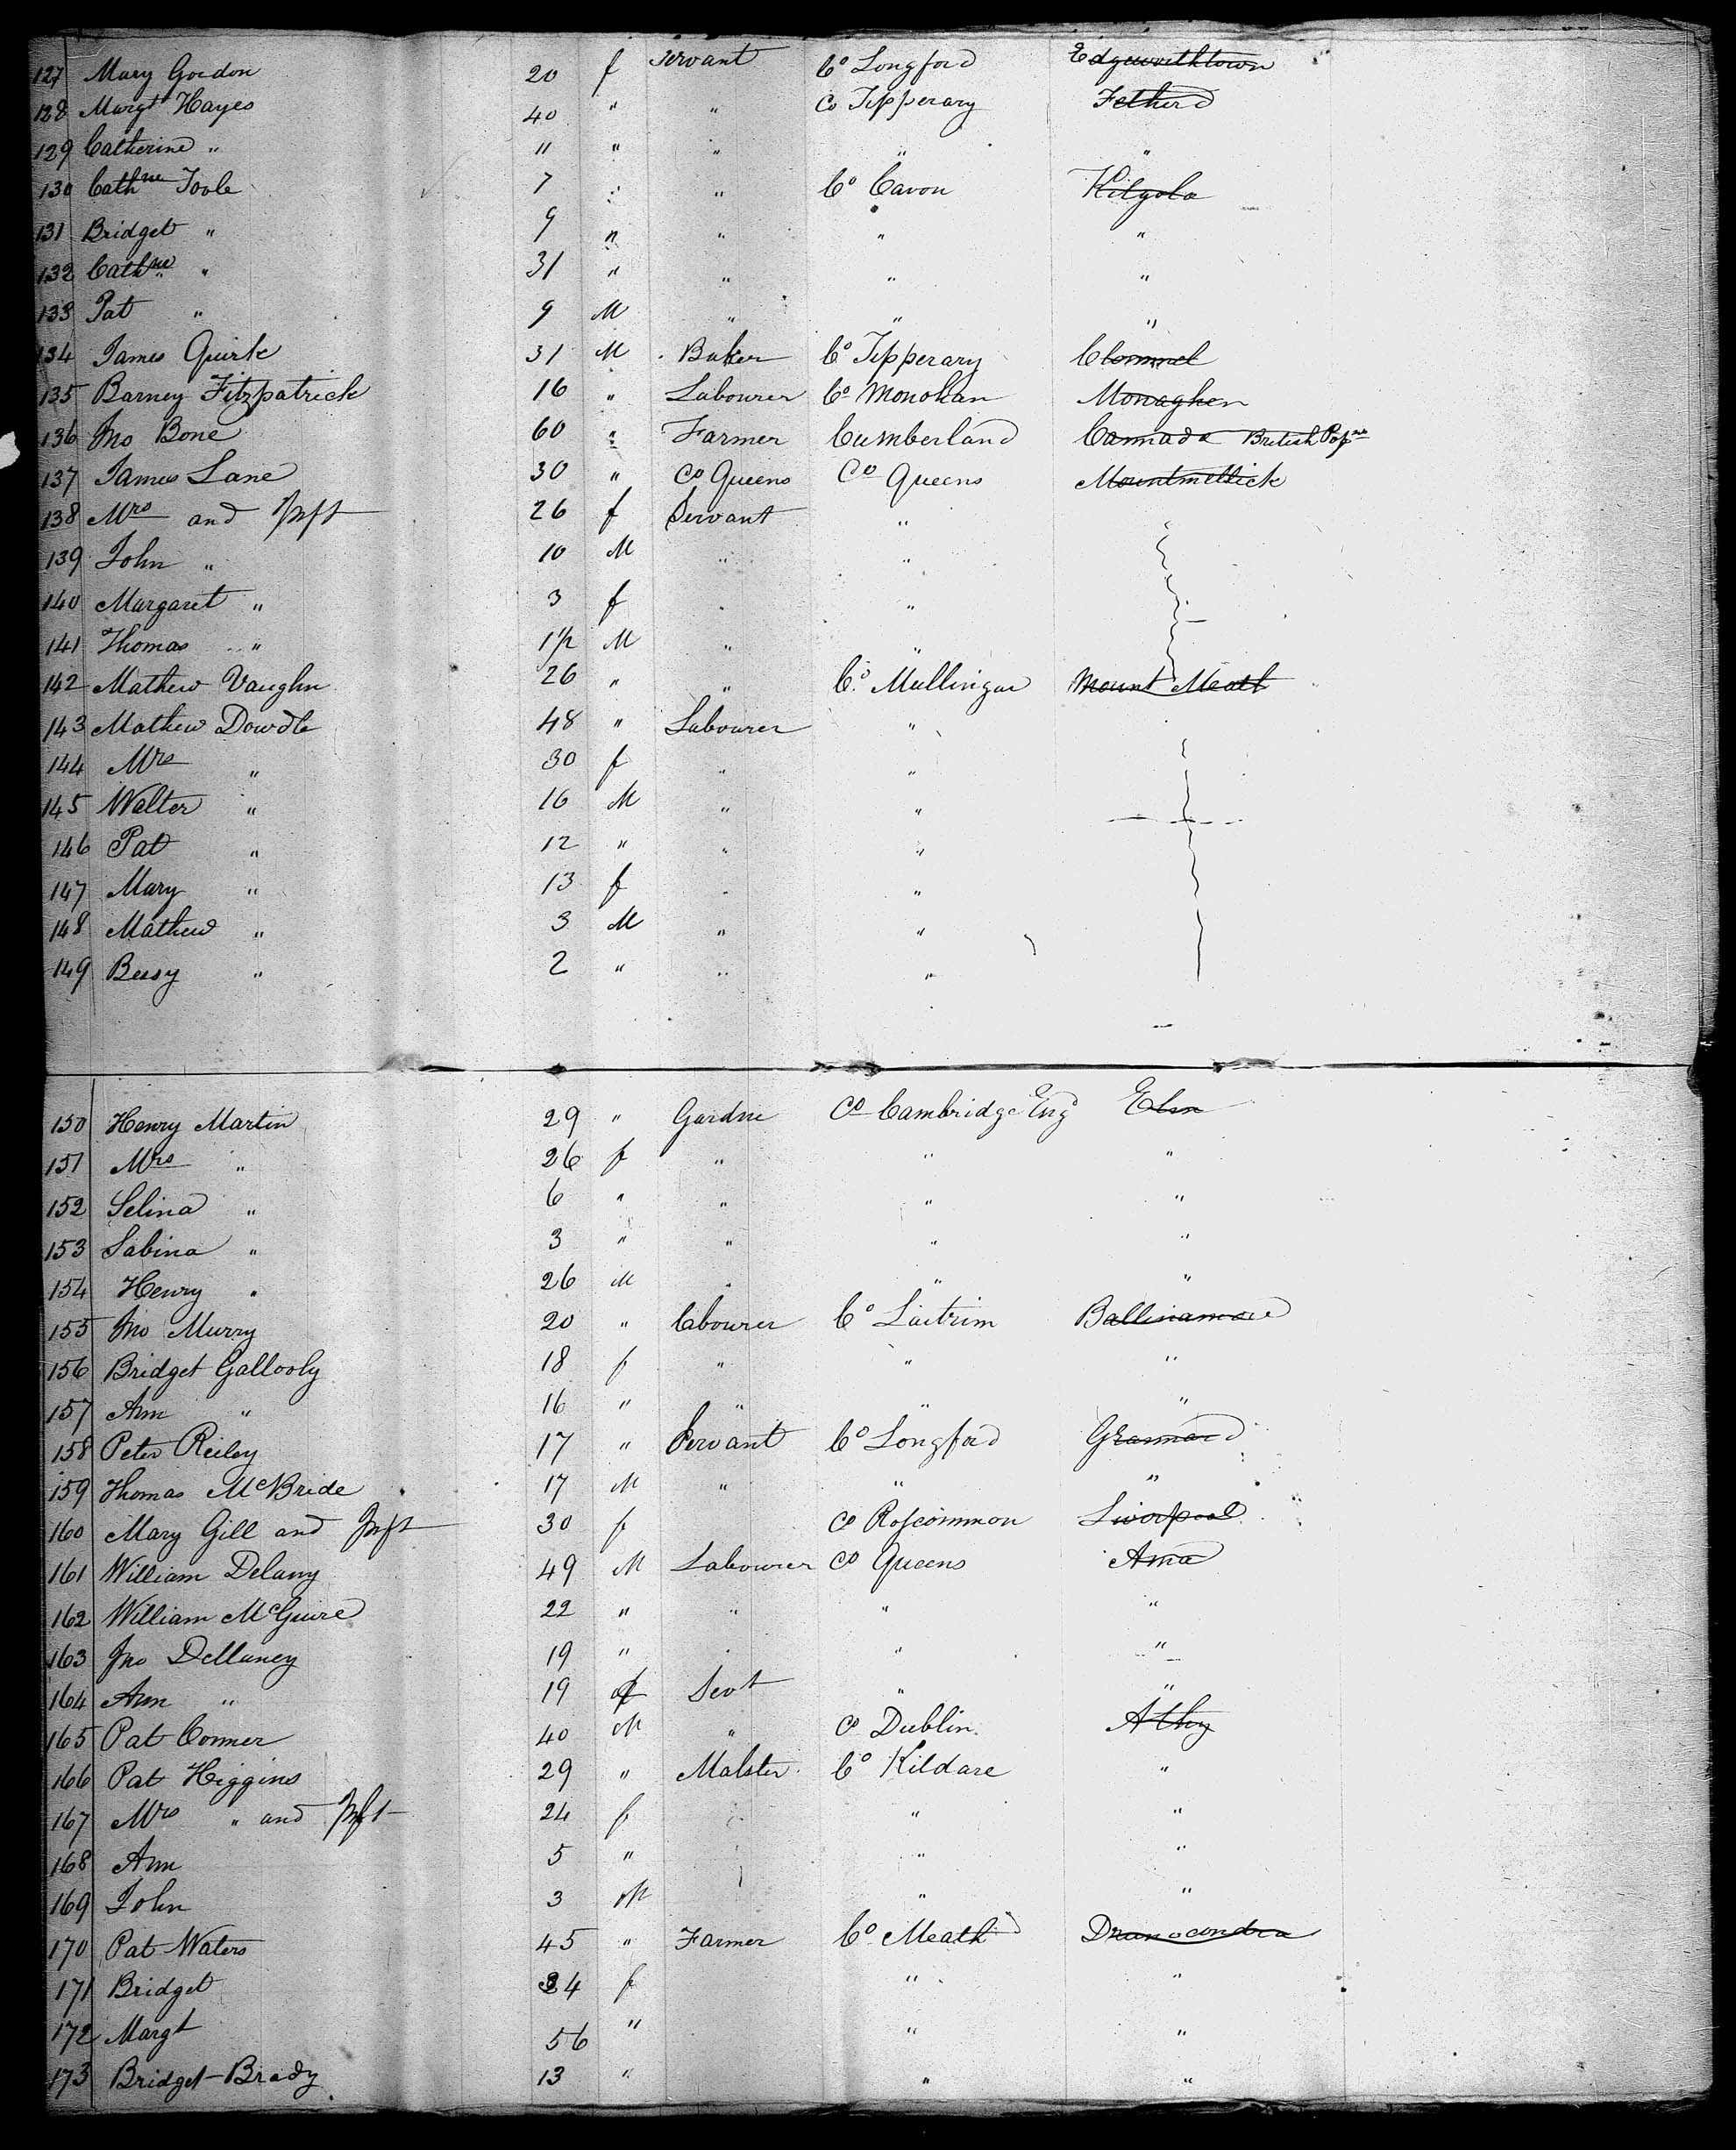 127 Mary Gordon 20 f Servant Co Longford Edgeworthtown
128 Margt Hayes 40 " " Co Tipperary Fetherd
129 Catherine " " " " " "
130 Cathne Toole 7 " " Co Cavon Kilgola
131 Bridget " 9 " " " "
132 Cathne " 31 " " " "
133 Pat " 9 M " " "
134 James Quirk 31 M Baker Co Tipperary Clommel
135 Barney Fitzpatrick 16 " Labourer Co Monohan Monaghen
136 Jno Bone 60 " Farmer Cumberland Cannada British
137 James Lane 30 " Co Queens Co Queens Mountmellick
138 Mrs and Inft 26 f Servant "
139 John " 10 M " "
140 Margaret " 3 f " "
141 Thomas " 1 1/2 M " "
142 Mathew Vaughn 26 " " Co Mullingar Mount Meath
143 Mathew Dowdle 48 " Labourer "
144 Mrs " 30 f " "
145 Walter " 16 M " "
146 Pat " 12 " " "
147 Mary " 13 f " "
148 Mathew " 3 M " "
149 Bessy " 2 " " "
150 Henry Martin 29 " Gardne Co Cambridge Eng Elm
151 Mrs " 26 f " " "
152 Selina " 6 " " " "
153 Sabina " 3 " " " "
154 Henry " 26 M " " "
155 Jno Murry 20 " Labourer Co Laitrim Ballinamore
156 Bridget Gallooly 18 f " " "
157 Ann " 16 " " " "
158 Peter Reiley 17 " Servant Co Longford Grannard
159 Thomas McBride 17 M " " "
160 Mary Gill and Inft 30 f Co Roscommon Liverpool
161 William Delany 49 M Labourer Co Queens Ama
162 William McGuire 22 " " " "
163 Jno Dellaney 19 " " " "
164 Ann " 19 f Sevt " "
165 Pat Conner 40 M " Co Dublin Athy
166 Pat Higgins 29 " Malster Co Kildare "
167 Mrs " and Inft 24 f " "
168 Ann 5 " " "
169 John 3 M " "
170 Pat Waters 45 " Farmer Co Meath Drumcondra
171 Bridget 34 f " "
172 Margt 56 " " "
173 Bridget Brady 13 " " "